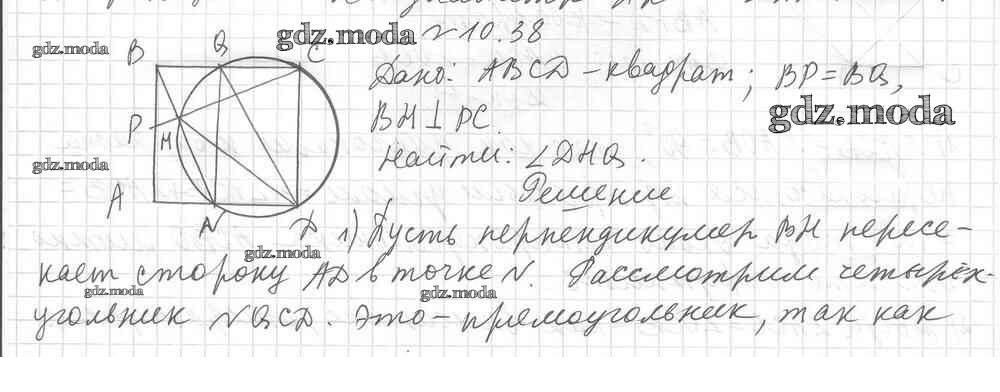 №10.38
gdz.moda
gdz.moda
B Q C
Дано: ABCD – квадрат; BP = BQ,
gdz.moda
P
BH ⊥ PC.
H
gdz.moda
Найти: ∠DHQ.
Решение
A N D
1) Пусть перпендикуляр BH пересе-
gdz.moda
кает сторону AD в точке N. Рассмотрим четырёх-
gdz.moda
gdz.moda
угольник NQCD. Это – прямоугольник, так как